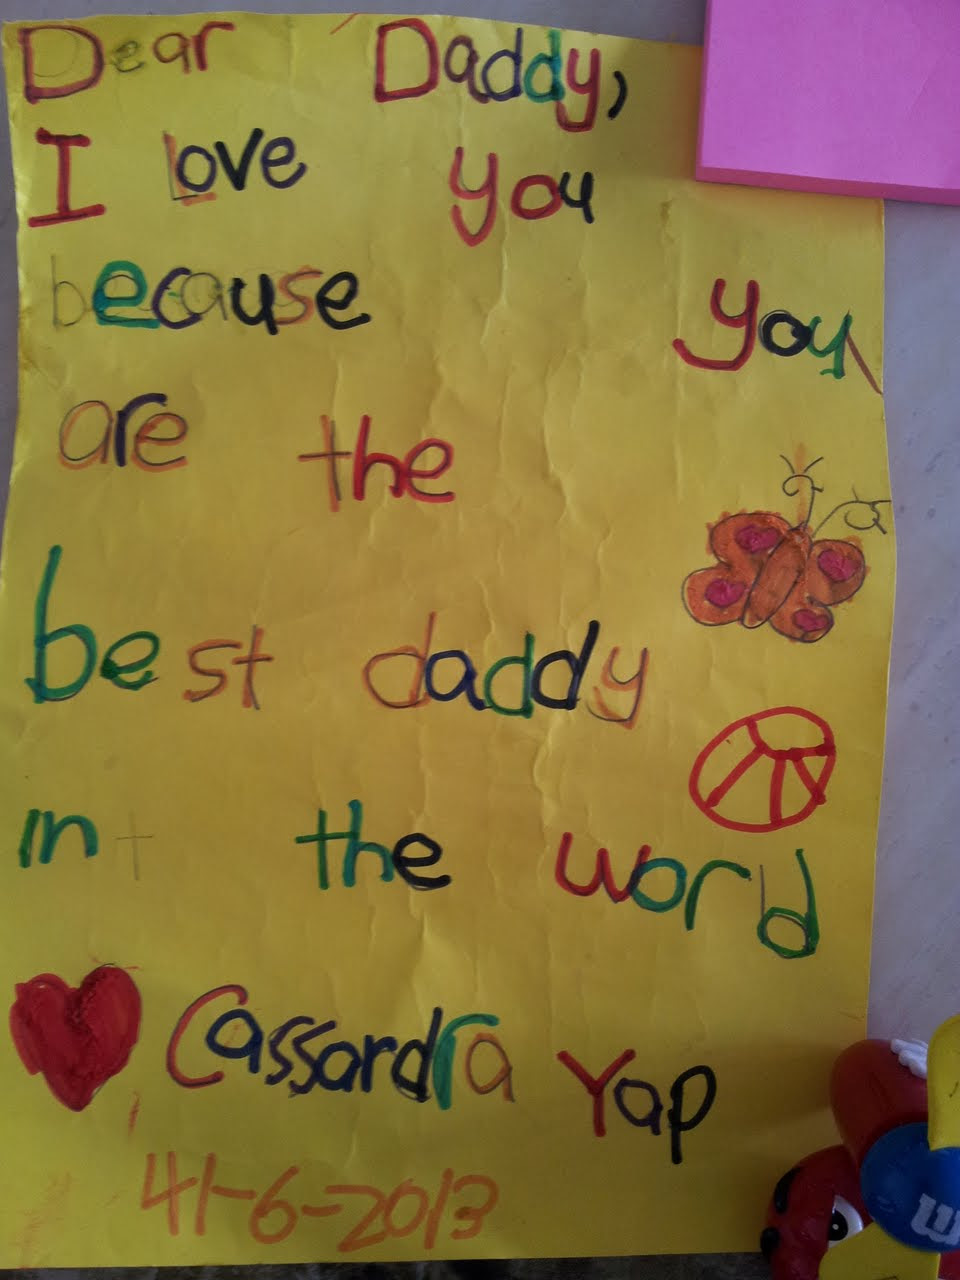 Dear Daddy,
I love you
because you
are the
best daddy
in the word
Cassardra Yap
41-6-2013
m